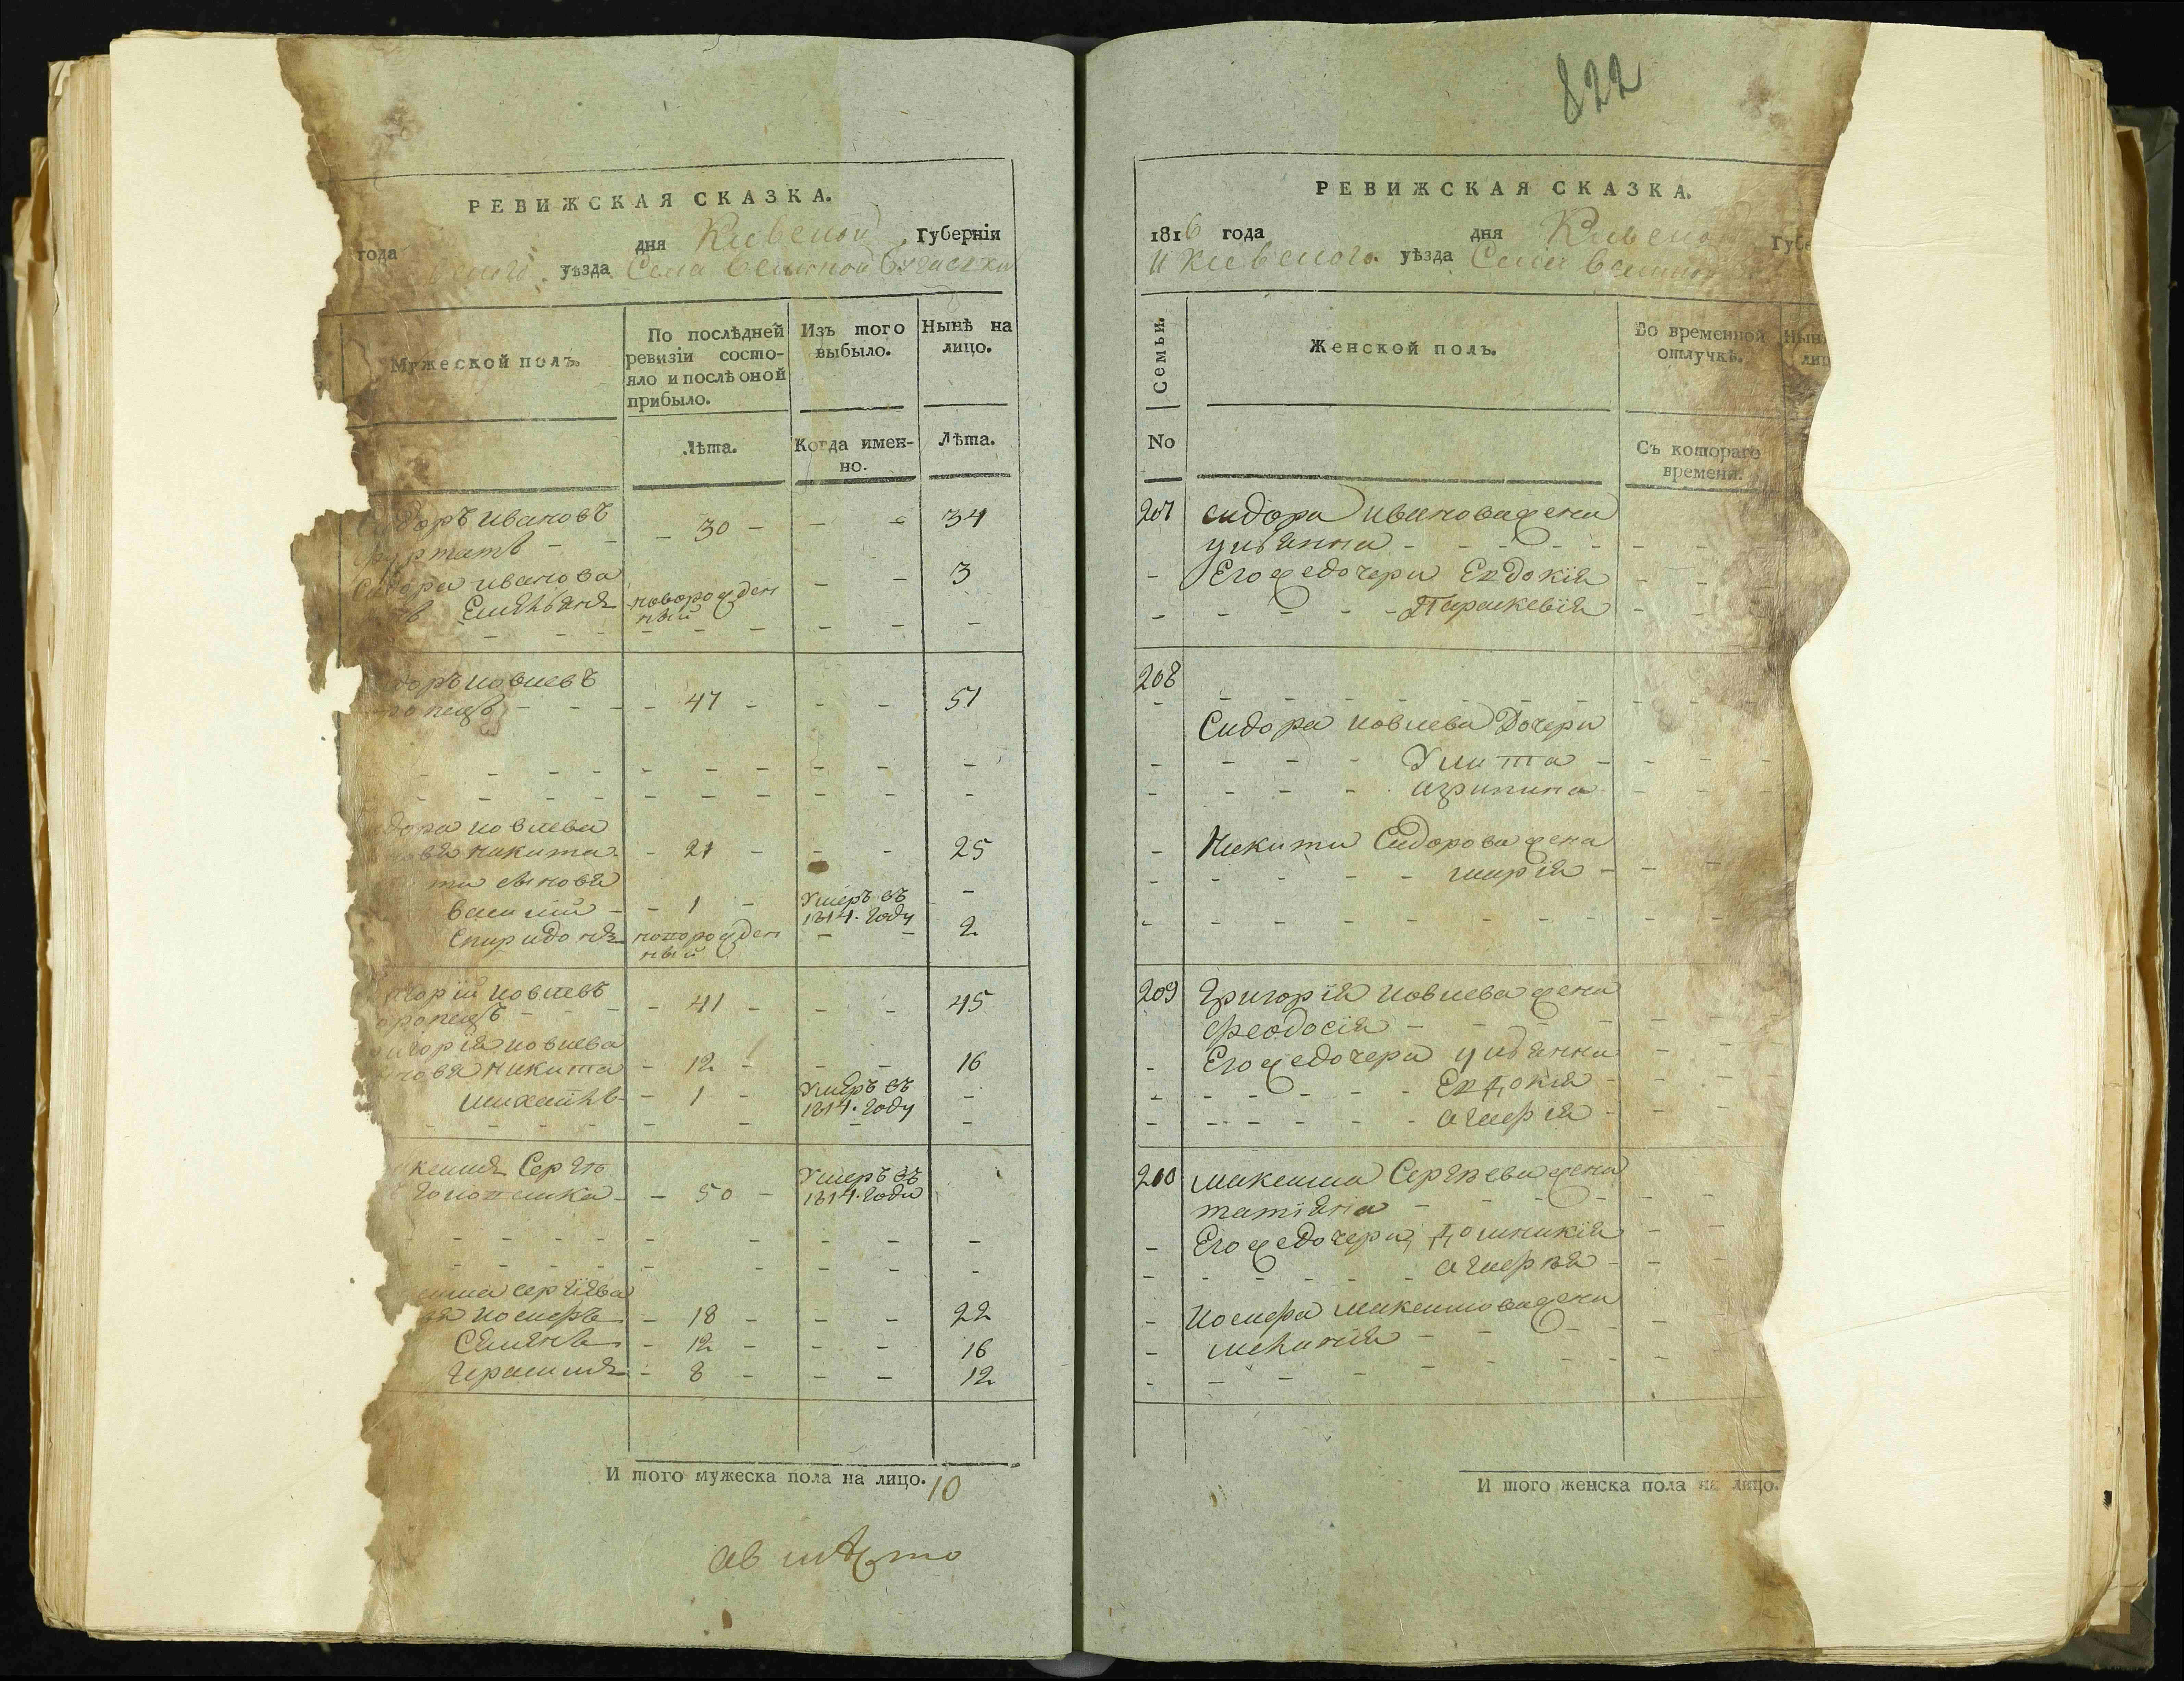 РЕВИЖСКАЯ СКАЗКА.
года дня Киевской Губерніи
уѣзда Села великой Бугаевки
Мужеской полъ.
По послѣдней ревизіи состо-
яло и послѣ оной
прибыло.
Изъ того
выбыло.
Нынѣ на
лицо.
Лѣта.
Когда имен-
но.
Лѣта.
Сидоръ Ивановъ
30 34
Сидора Иванова
Емельянъ новорожден
ный 3
доръ Иовлевъ
47 51
дора Иовлева
новя Никита 21 25
ти сыновя
василий 1 Умеръ въ
1814. году
Спиридонъ новорожден
ный 2
горій Иовлевъ
41 45
игорія Иовлева
новя Никита 12 16
Михайлъ 1 Умеръ въ
1814. году
ксимъ Сергѣ
50 Умеръ въ
1814. Году
сима Сергіева
вя Иосифъ 18 22
Семенъ 12 16
Герасимъ 8 12
И того мужеска пола на лицо. 10
822
РЕВИЖСКАЯ СКАЗКА.
1816 года дня Киевской Губе
И Киевского уѣзда Села велико
Семьи.
Женской полъ.
Во временной
отлучкѣ.
Нын
лиц
No
Съ котораго
времени.
207 Сидора Иванова жена
улянна
Его же дочери Евдокія
Параскевія
208
Сидора Иовлева Дочери
Улита
агрипина
Никити Сидорова жена
марія
209 Григорія Иовлева жена
феодосія
Его же дочери улянна
Евдокія
агафія
210 максима Сергѣева жена
татіяна
Его же дочери, домникія
агафія
Иосифа максимова жена
меланія
И того женска пола на лицо.